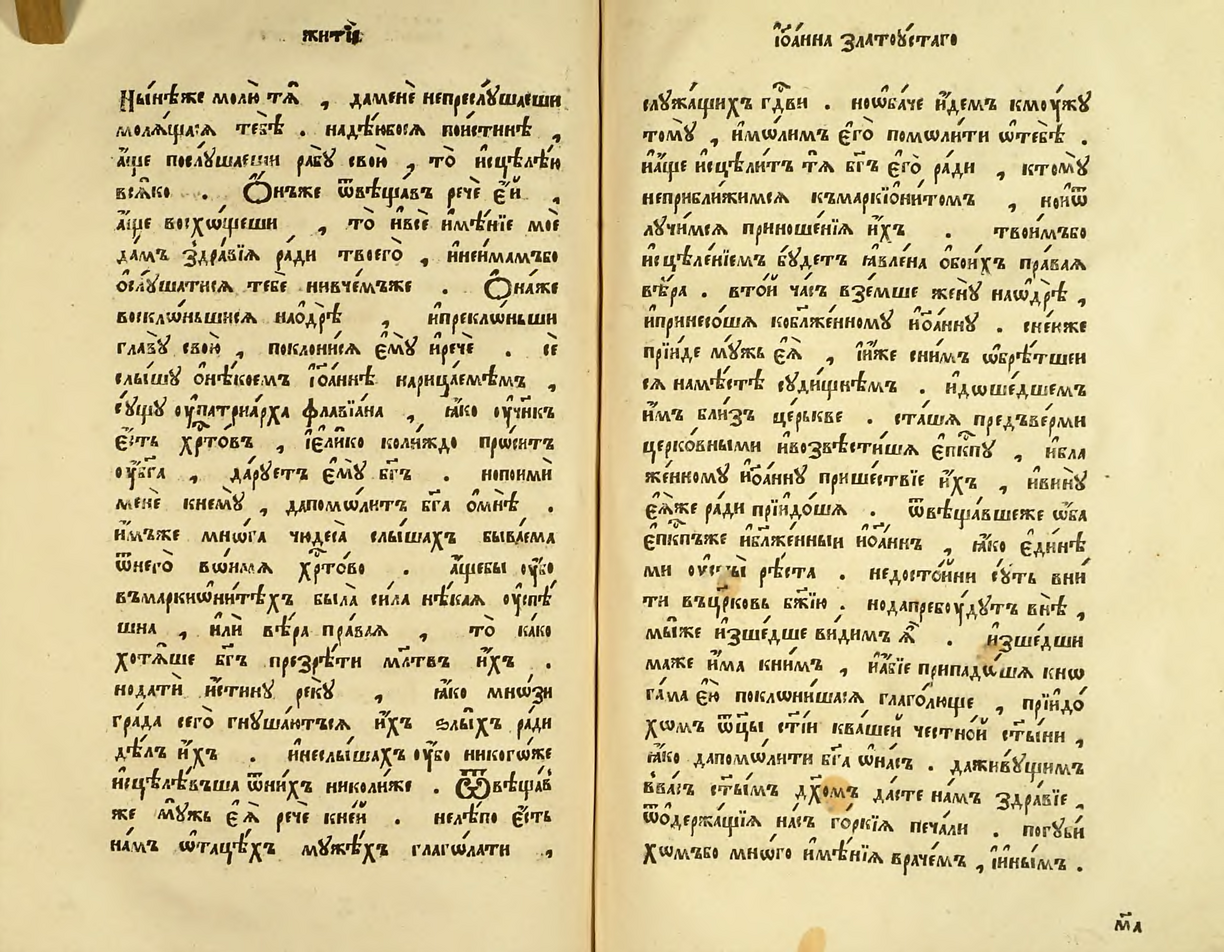 житїѐ
Ны́нѣже молю̀ тѧ̀ , даменѐ непреслꙋ́шаеши
молѧ́щаѧсѧ тебѣ̀ . надѣ́юбосѧ пои́стинѣ ,
а҆́ще послꙋ́шаеши рабꙋ̀ свою̀ , то̀ и҆сцѣлѣ́ю
всѧ́ко . Ѻ҆́нъже ѿвѣща́въ речѐ є҆́й ,
а҆́ще восхѡ́щеши , то̀ и҆всѐ и҆мѣ́нїе моѐ
да́мъ здра́вїѧ ра́ди твоегѡ̀ , и҆неи́мамъбо
ѻ҆слꙋ́шатисѧ тебѐ нивче́мъже . Ѻ҆на́же
восклѡ́ньшисѧ нао҆дрѣ̀ , и҆преклѡ́ньши
главꙋ̀ свою̀ , поклони́сѧ є҆мꙋ̀ и҆речѐ . сѐ
слы́шꙋ о҆нѣ́коемъ і҆ѡа́ннѣ нарица́емѣмъ ,
сꙋ́щꙋ ᲂу҆патрїа́рха флавїа́на , ꙗ҆́ко ᲂу҆чн҃къ
є҆́сть хр҃то́въ , і҆є҆ли́ко коли́ждо про́ситъ
ᲂу҆бг҃а , да́рꙋетъ є҆мꙋ̀ бг҃ъ . нопоимѝ
менѐ кнемꙋ̀ , дапомѡ́литъ бг҃а ѻ҆мнѣ̀ .
и҆́мъже мно́га чюдеса̀ слы́шахъ быва́ема
ѿнегѡ̀ во́имѧ хр҃то́во . а҆́щебы ᲂу҆́бо
въмаркиѡни́тѣхъ была̀ си́ла нѣ́каѧ ᲂу҆спѣ́
шна , и҆лѝ вѣ́ра пра́ваѧ , то̀ ка́ко
хотѧ́ше бг҃ъ презрѣ́ти мл҃твъ и҆́хъ .
нодатѝ и҆́стинꙋ рекꙋ̀ , ꙗ҆́ко мнѡ́зи
гра́да сегѡ̀ гнꙋша́ютсѧ и҆́хъ ѕлы́хъ ра́ди
дѣ́лъ и҆́хъ . и҆неслы́шахъ ᲂу҆́бо никого́же
и҆сцѣлѣ́въша ѿни́хъ николи́же . Ѿвѣща́в
же мꙋ́жь є҆ѧ̀ речѐ кне́й . нелѣ́по є҆́сть
на́мъ ѡ҆тацѣ́хъ мꙋжѣ́хъ глаго́лати ,
і҆ѡа́нна златоꙋ́стаго
слꙋжа́щихъ гд҃ви . ноѡ҆ба́че и҆́демъ кмꙋ́жꙋ
томꙋ̀ , и҆мо́лимъ є҆гѡ̀ помоли́ти ѡ҆тебѣ̀ .
и҆а҆́ще и҆сцѣли́тъ тѧ̀ бг҃ъ є҆гѡ̀ ра́ди , ктомꙋ̀
неприбли́жимсѧ къмаркїѡни́томъ , нои҆ѿ
лꙋчи́мсѧ приноше́нїѧ и҆́хъ . твои́мъбо
и҆сцѣле́нїемъ бꙋ́детъ ꙗ҆вле́на ѻ҆бои́хъ пра́ваѧ
вѣ́ра . вто́й ча́съ взе́мше женꙋ̀ наѡ҆дрѣ̀ ,
и҆принесо́шѧ кобл҃же́нномꙋ і҆ѡа́ннꙋ . сне́юже
прїи́де мꙋ́жь є҆ѧ̀ , і҆и҆́же сни́мъ ѡ҆брѣ́тшеи
сѧ намѣ́стѣ сꙋди́щнѣмъ . и҆доше́дшемъ
и҆́мъ бли́зъ це́рькве . ста́шѧ предъве́рми
церко́вными и҆возвѣсти́шѧ є҆пкпꙋ , и҆бла
же́нномꙋ і҆ѡа́ннꙋ прише́ствїе и҆́хъ , и҆винꙋ̀
є҆ѧ́же ра́ди прїидо́шѧ . ѿвѣща́вшеже ѡ҆́ба
є҆пкпъже и҆бл҃же́нныи і҆ѡа́ннъ , ꙗ҆́ко є҆ди́нѣ
ми ᲂу҆сты̀ рѣ́ста . недосто́йни сꙋ́ть вни́
ти въцр҃ковь бж҃їю . нодапребꙋ́дꙋтъ внѣ̀ ,
мы́же и҆зше́дше ви́димъ ѧ҆̀ . и҆зше́дши
маже и҆́ма кни́мъ , и҆а҆́бїе припадо́шѧ кно
га́ма є҆ю̀ поклони́шасѧ глаго́люще , прїидо́
хомъ ѿц҃ы ст҃і́и ква́шей че́стно́й ст҃ы́ни ,
ꙗ҆́ко дапомо́лити бг҃а ѡ҆на́съ . даживꙋ́щимъ
вва́съ ст҃ы́мъ дх҃омъ да́сте на́мъ здра́вїе ,
ѿодержа́щїѧ на́съ го́ркїѧ печа́ли . погꙋби́
хомъбо мно́го и҆мѣ́нїѧ враче́мъ , і҆и҆ны́мъ .
м҃д